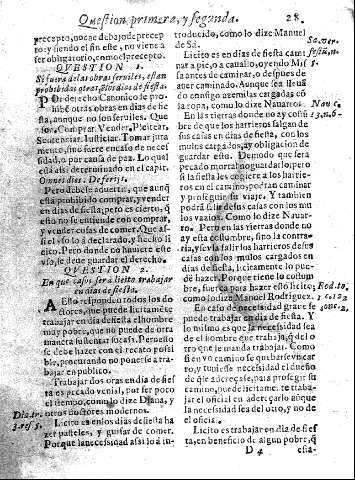 Question primera, y segunda. 28.
precepto, no cae debajo de precep
to: y siendo el fin este, no viene a
ser obligatorio, como el precepto.
QVESTION 1.
Si fuera de las obras seruiles, estan
prohibidas otras el dia de fiesta?
POr derecho Canonico se prohi
be otras obras en dias de fies
ta, aunque no son seruiles. Que
son, Comprar, Vender, Pleitear,
Sentenciar, Iusticiar, Tomar jura
mento, sino fuere en caso de neces
sidad, o por causa de paz. Lo qual
està assi determinado en el capit.
Omnes dies. De ferijs.
Pero debese aduertir, que aunq̃
està prohibido comprar, y vender
en dias de fiesta, pero es cierto, q̃
esto no se entiende con comprar,
y vender cosas de comer. Que as-
si el vso lo à declarado, y hecho li
cito. Pero donde no huuiere este
vso, se debe guardar el derecho.
QVESTION 2.
En que casos serà licito trabajar
en dias de fiesta.
A Esto responden todos los do-
ctores, que puede licitamẽte
trabajar en dia de fiesta el hombre
muy pobre, que no puede de otra
manera sustentar su casa. Pero esto
se debe hazer con el recato possi
ble, procurando no ponerse a tra-
bajar en publico.
Trabajar dos oras en dia de fies
ta es pecado venial, por ser poco
el tiempo, como lo dize Diana, y
otros doctores modernos.
Dia. tr.
3. res 5.
Licito es en los dias de fiesta ha
zer pasteles, y guisar de comer.
Porque la necessidad assi lo à in-
troducido, como lo dize Manuel
de Sà.
Sa, ver.
festũ, n.
Licito es en dias de fiesta cami
nar a pie, o a cauallo, oyendo Mis
sa antes de caminar, o despues de
auer caminado. Aunque sea lleuã
do consigo azemilas cargadas cõ
la ropa, como lo dize Nauarro.
Nau. c.
13. n. 6.
En las tierras donde no ay costũ
bre de que los harrieros salgan de
sus casas en dias de fiesta, con los
mulos cargados, ay obligacion de
guardar esto. De modo que serà
pecado mortal no guardarlo; pero
si la fiesta les cogiere a los harrie-
ros en el camino, podran caminar
y proseguir su viaje. Y tambien
podrà salir de sus casas con los mu
los vazios. Como lo dize Nauar-
ro. Pero en las tierras donde no
ay esta costumbre, sino la contra-
ria, y se vsa salir los harrieros de sus
casas con los mulos cargados en
dia de fiesta, licitamente lo pue-
dẽ hazer. Porque tiene lo costum
bre, fuerça para hazer esto licito,
como lo dize Manuel Rodriguez.
En caso de necessidad graue se
puede trabajar en dia de fiesta. Y
lo mismo es que la necessidad sea
del hombre que trabaja, o del o
tro que le manda trabajar. Como
si en vn camino se quebrasse vn car
ro, y tuuiesse necessidad el dueño
de que se adereçasse, para prosegir su
camino, puede licitamẽte traba-
jar el oficial en adereçarlo aũque
la necessidad sea del otro, y no de
el oficial.
Licito es trabajar en dia de fies
ta, en beneficio de algun pobre, q̃
D 4 esta-